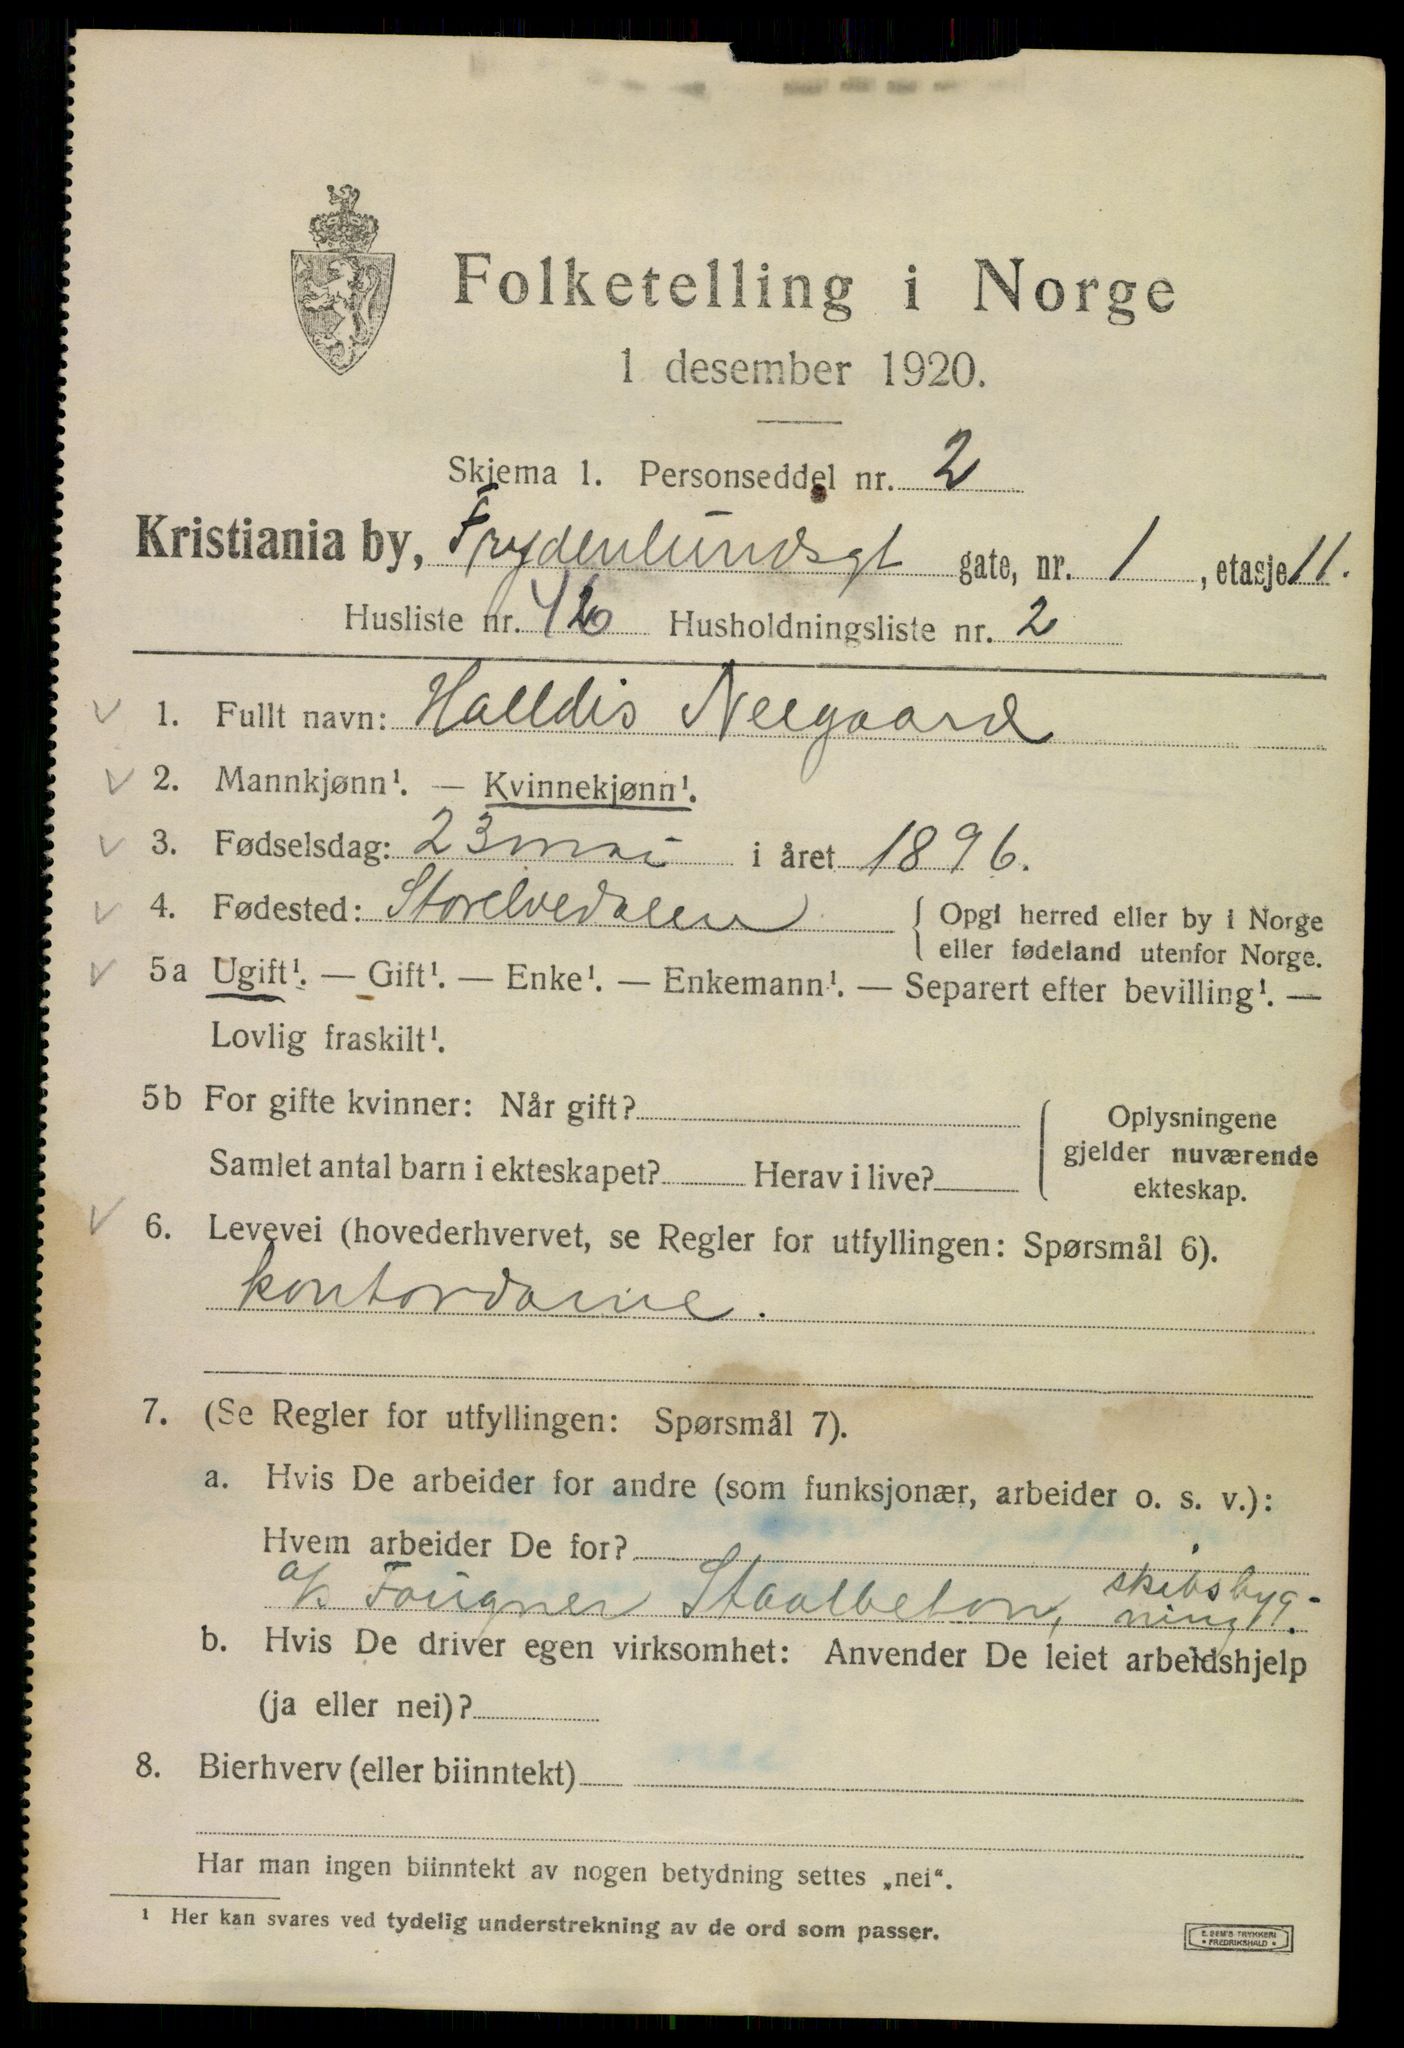 Folketelling i Norge
1 desember 1920.
Skjema 1. Personseddel nr. 2
Kristiania by, Frydenlundsgt gate, nr. 1, etasje 11.
Husliste nr. Husholdningsliste nr. 2
1. Fullt navn: Halldis Neegaard
2. Mannkjønn¹. — Kvinnekjønn¹.
3. Fødselsdag: 23 mai i året 1896.
4. Fødested: Storelvedalen { Opgi herred eller by i Norge
eller fødeland utenfor Norge.
5a Ugift¹. — Gift¹. — Enke¹. — Enkemann¹. — Separert efter bevilling¹. —
Lovlig fraskilt¹.
5b For gifte kvinner: Når gift?
Samlet antal barn i ekteskapet? Herav i live?
Oplysningene
gjelder nuværende
ekteskap.
6. Levevei (hovederhvervet, se Regler for utfyllingen: Spørsmål 6).
kontordame.
7. (Se Regler for utfyllingen: Spørsmål 7).
a. Hvis De arbeider for andre (som funksjonær, arbeider o. s. v.):
Hvem arbeider De for?
a/s Fougner Staalbeton, skibsbyg-
ning.
b. Hvis De driver egen virksomhet: Anvender De leiet arbeidshjelp
(ja eller nei)?
8. Bierhverv (eller biinntekt)
Har man ingen biinntekt av nogen betydning settes „nei“.
¹ Her kan svares ved tydelig understrekning av de ord som passer.
E. SEM'S TRYKKERI
• FREDRIKSHALD •